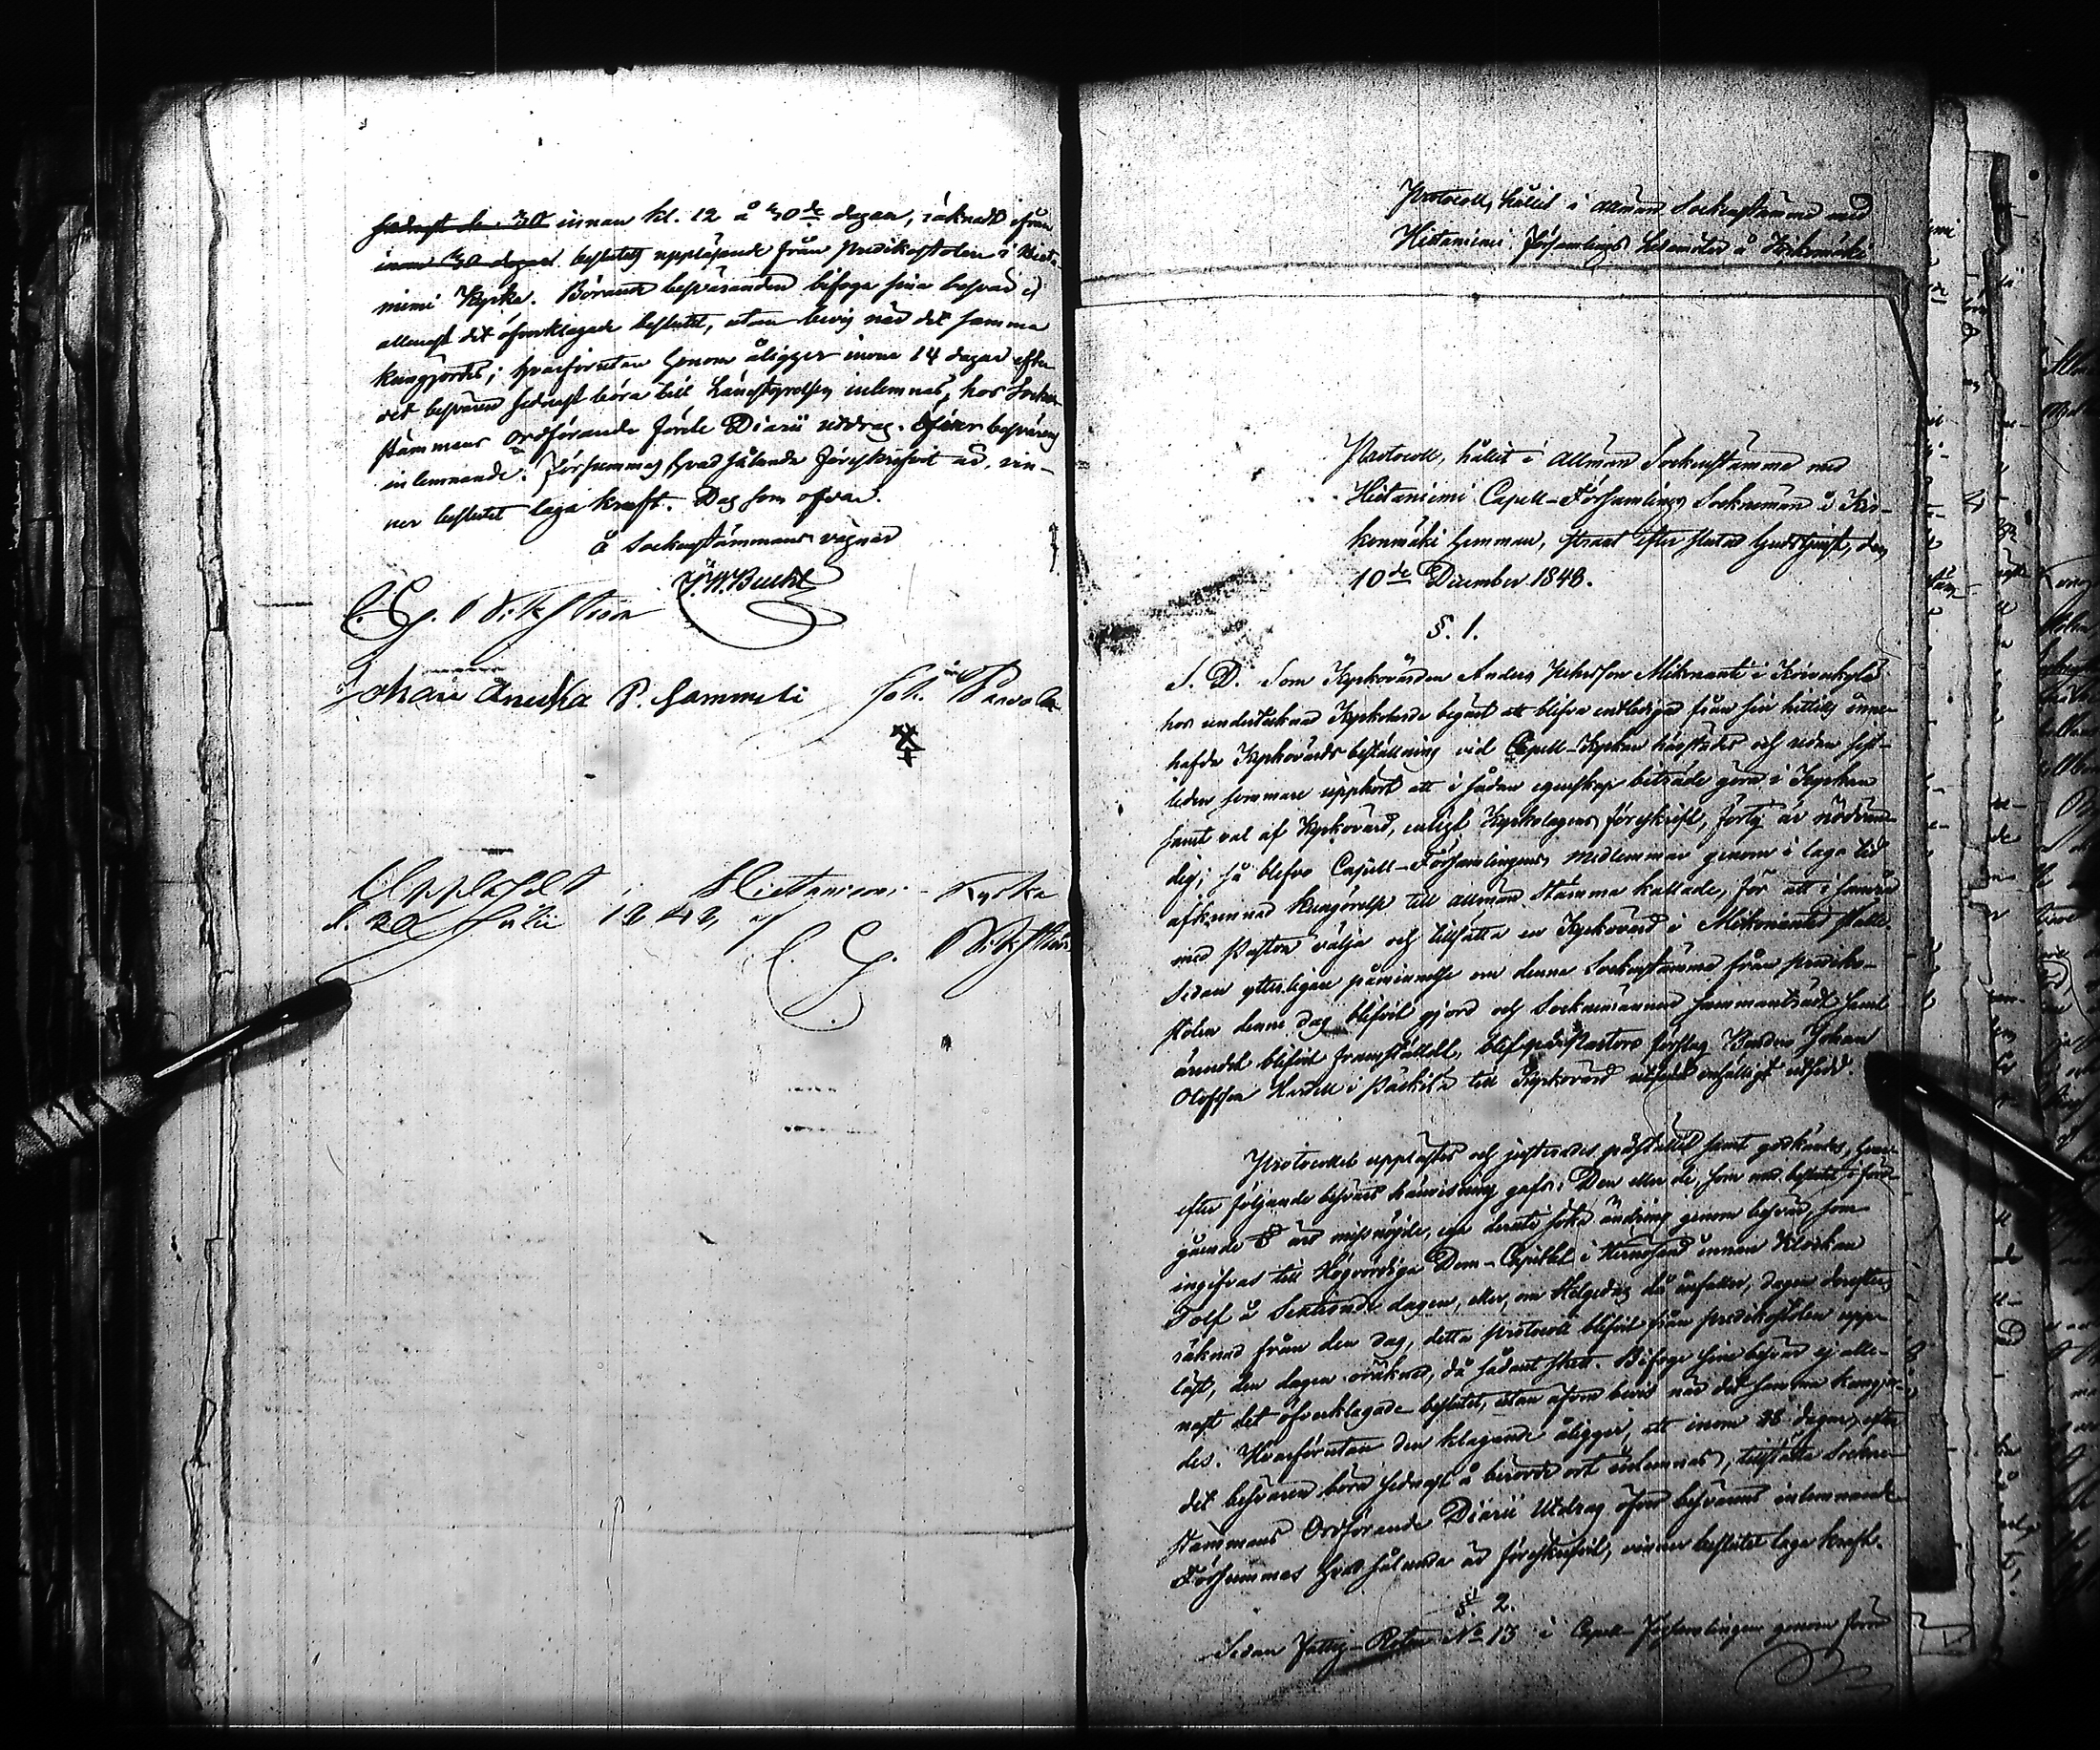 sednast de 30 innan kl. 12 å 30de dagen, räknadt ifrån
inom 30 dagar beslutets uppläsande från Predikostolen i Hieta-
niemi Kyrka. Börande besväranden bifoga sina besvär ej
allenast det öfverklagade beslutet, utan bevis när det samma
kungjordes; hvarförutan honom åligger inom 14 dagar efter
det besvären sednast böra till Länestyrelsen inlemnas, hos Socken-
stämmans Ordförande förete Diarii utdrag. öfver besvärens
inlemnande. Försummas hvad sålunda föreskrifvit är, vin-
ner beslutet laga kraft. Dag som ofvan.
å Sockenstämmans vägnar
J. W. Bucht
C. G.
Johan P. Sammeli Joh.
Uppläst i Hietaniemi Kyrka
d. Julii 1848, af
C. G.
Protocoll, hållit i allmän Sockenstämma med
Hietaniemi Församlings ledamöter å Kirkomäki
Protocoll, hållit i Allmän Sockenstämma med
Hietaniemi Capell-Församlings Socknemän å Kir-
konmäki hemman, straxt efter slutad Gudstjenst, den
10de December 1848.
§. 1.
S. D. Som Kyrkovärden Anders Mikonanti i Koivukylä
hos undertecknad Kyrkoherde begärt att blifva entledigad från sin hittills inne-
hafde Kyrkovärds beställning vid Capell-Kyrkan härstädes och redan sist-
leden sommare upphört att i sådan egenskap biträde göra i Kyrkan
samt val af Kyrkovärd, enligt Kyrkolagens föreskrift, förty är nödvän-
dig; så blefvo Capell-Församlingens medlemmar genom i laga tid
afkunnad kungörelse till allmän stämma kallade, för att i samråd
med Pastor välja och tillsätta en Kyrkovärd i Mikonantis ställe.
Sedan ytterligare påminnelse om denna Sockenstämma från prediko-
stolen denne dag blifvit gjord och Socknemännen sammanträdt samt
ärendet blifvit framstäldt, blef på Pastors förslag Bonden Johan
Olofsson i Päckilä till Kyrkovärd enhälligt utsedd.
Protocollet upplästes och justerades på stället samt godkändes, hvar-
efter följande besvärs hänvisning gafs: Den eller de, som med beslutet i före-
gående § äro missnöjde, ega deruti söka ändring genom besvär, som
ingifvas till Högvördiga Dom-Capitlet i Hernösand innan Klockan
Tolf å Trettionde dagen, eller, om Helgedag då infaller, dagen derefter,
räknad från den dag, detta protocoll blifvit från predikostolen upp-
läst, den dagen oräknad, då sådant skett. Bifoge sine besvär ej alle-
nast det öfverklagade beslutet, utan äfven bevis när det samma kungjor-
des. Hvarförutan den klagande åligger, att inom dagar, efter
det besvären böra sednast å berörde ort inlemnas, tillställa Socken-
stämmans Ordförande Diarii Utdrag öfver besvärens inlemnande.
Försummas hvad sålunda är föreskrifvit, vinner beslutet laga kraft.
§. 2.
Sedan Fattig-Roten No 13 i Capell-Församlingen genom förra